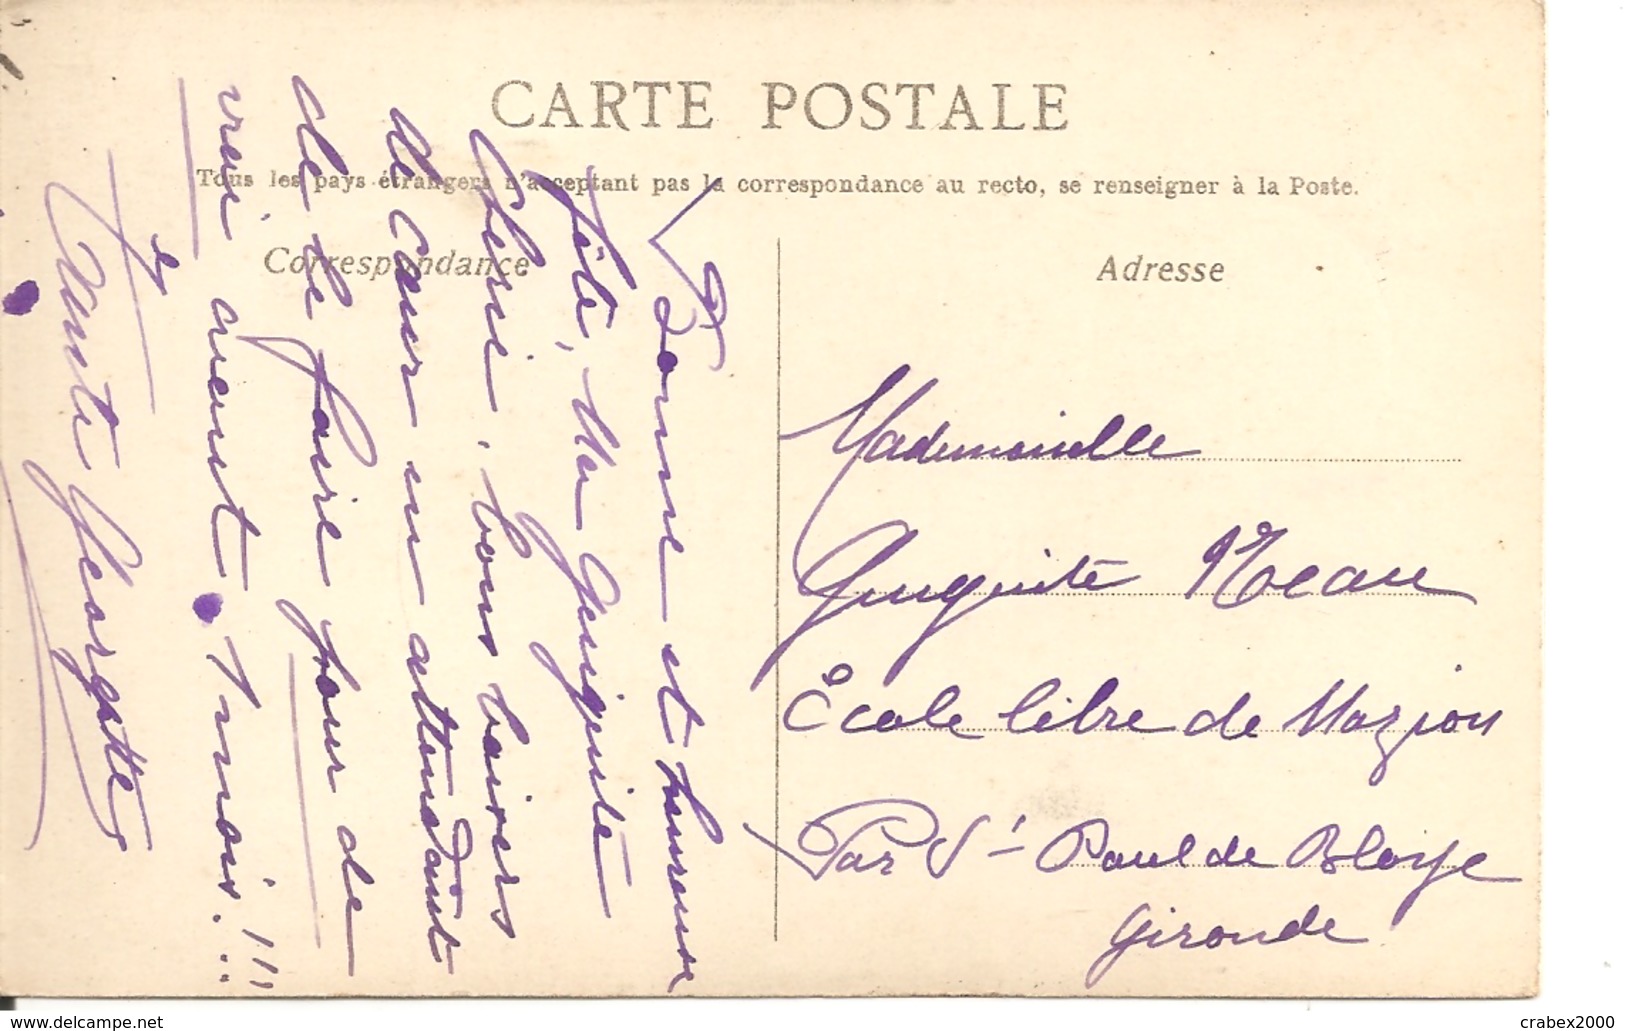 CARTE POSTALE
Tous les pays étrangers n'acceptant pas la correspondance au recto, se renseigner à la Poste.
Correspondance
Adresse
Bonne et heureuse
fête, Ma Guiguite
Chérie, bons baisers
de cœur en attendant
de le faire pour de
vrai, avant 1 mois..!!!
Tante Georgette
Mademoiselle
Guiguite Neau
École libre de Mazion
Par St Paul de Blaye
Gironde
www.delcampe.net
crabex2000